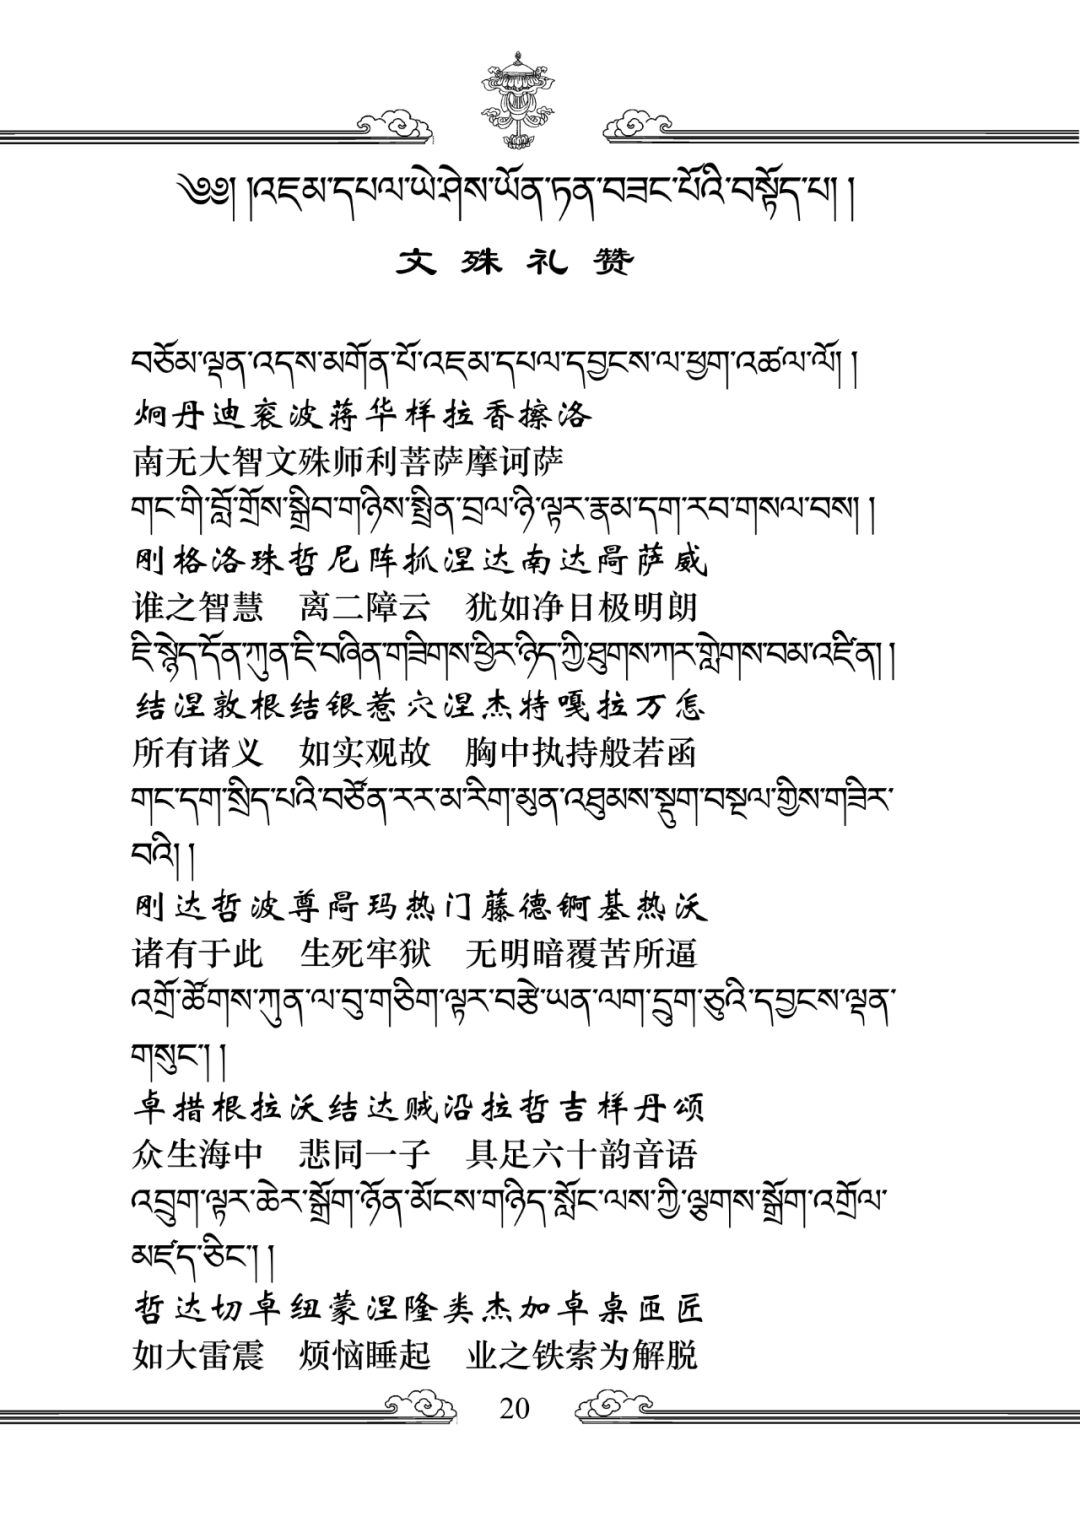 ༄༅། །འཇམ་དཔལ་ཡེ་ཤེས་ཡོན་ཏན་བཟང་པོའི་བསྟོད་པ། །
文殊礼赞
བཅོམ་ལྡན་འདས་མགོན་པོ་འཇམ་དཔལ་དབྱངས་ལ་ཕྱག་འཚལ་ལོ། །
炯丹迪衮波蒋华样拉香擦洛
南无大智文殊师利菩萨摩诃萨
གང་གི་བློ་གྲོས་སྒྲིབ་གཉིས་སྤྲིན་བྲལ་ཉི་ལྟར་རྣམ་དག་རབ་གསལ་བས། །
刚格洛珠哲尼阵抓涅达南达局萨威
谁之智慧 离二障云 犹如净日极明朗
ཇི་སྙེད་དོན་ཀུན་ཇི་བཞིན་གཟིགས་ཕྱིར་ཉིད་ཀྱི་ཐུགས་ཀར་གླེགས་བམ་འཛིན། །
结涅敦根结银惹穴涅杰特嘎拉万怎
所有诸义 如实观故 胸中执持般若函
གང་དག་སྲིད་པའི་བཙོན་རར་མ་རིག་མུན་འཐུམས་སྡུག་བསྔལ་གྱིས་གཟིར་
བའི། །
刚达哲波尊局玛热门藤德锕基热沃
诸有于此 生死牢狱 无明暗覆苦所逼
འགྲོ་ཚོགས་ཀུན་ལ་བུ་གཅིག་ལྟར་བརྩེ་ཡན་ལག་དྲུག་ཅུའི་དབྱངས་ལྡན་
གསུང༌། །
卓措根拉沃结达贼沿拉哲吉样丹颂
众生海中 悲同一子 具足六十韵音语
འབྲུག་ལྟར་ཆེར་སྒྲོག་ཉོན་མོངས་གཉིད་སློང་ལས་ཀྱི་ལྕགས་སྒྲོག་འགྲོལ་
མཛད་ཅིང༌། །
哲达切卓纽蒙涅隆类杰加卓桌匝匠
如大雷震 烦恼睡起 业之铁索为解脱
20